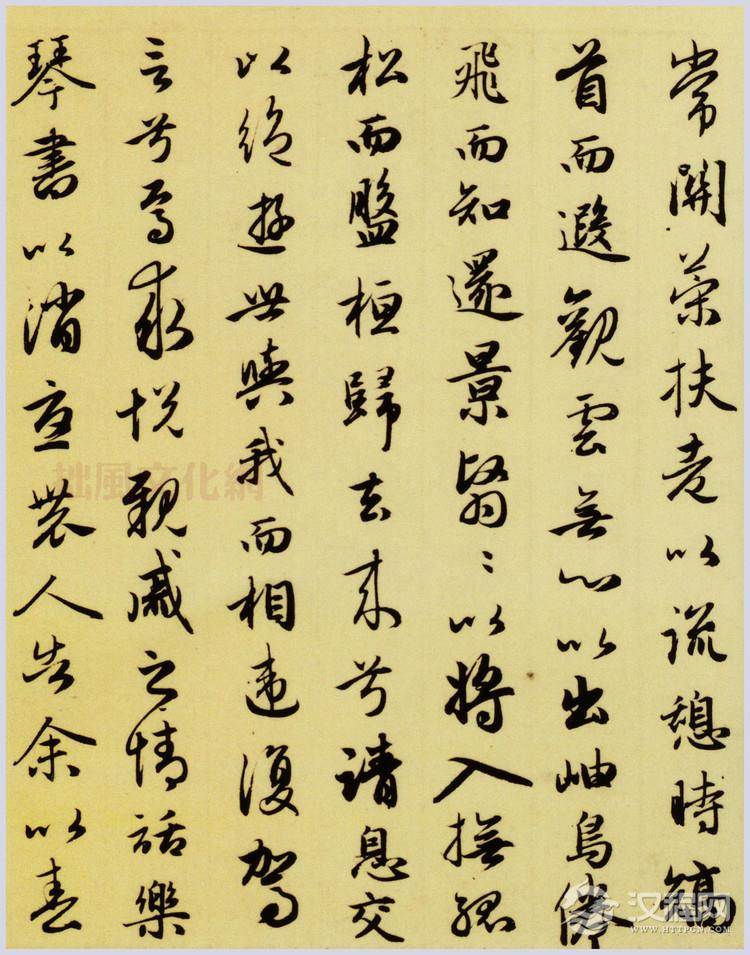 常關策扶老以流憩時矯
首而遐觀雲無心以出岫鳥倦
飛而知還景翳〻以將入撫孤
松而盤桓歸去来兮請息交
以絶遊世與我而相違復駕
言兮焉求悅親戚之情話樂
琴書以消憂農人告余以春
拙風文化網
汉程网
WWW.HTTPCN.COM